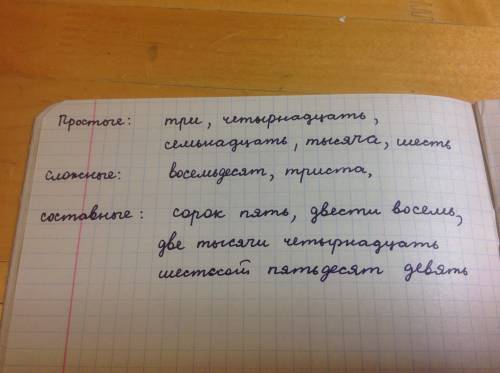 Простые: три, четырнадцать,
семьнадцать, тысяча, шесть
Сложные: восемьдесят, триста,
составные: сорок пять, двести восемь,
две тысячи четырнадцать
шестссой пятьдесят девять